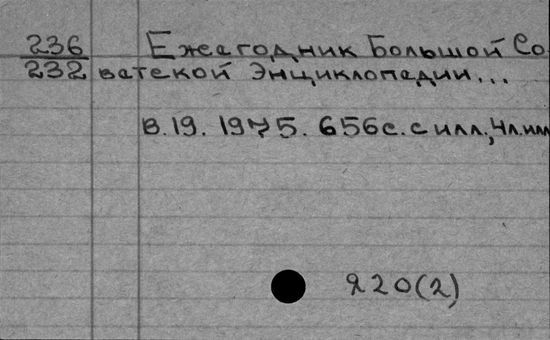 236 Ежегодник Большой Со
232 ветской Энциклопедии...
в. 19. 1975. 656с. с илл., 4л. илл
220(2)